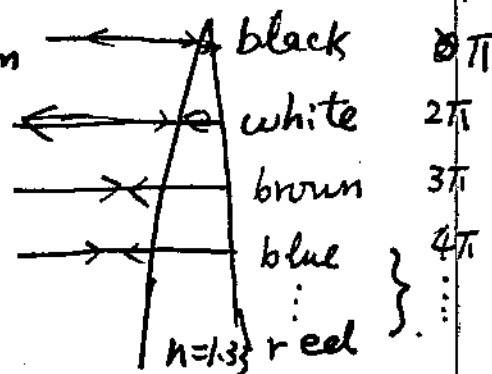 n
black π
white 2π
brown 3π
blue 4π
n=1.33 red